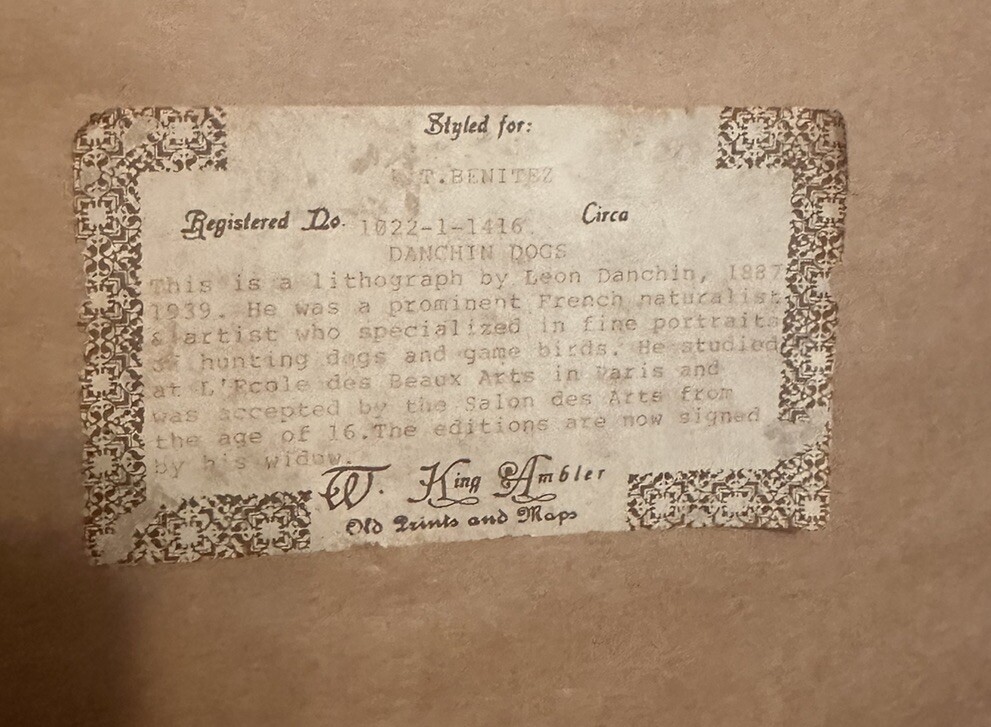 Styled for:
T.BENITEZ
Registered No. 1022-1-1416. Circa
DANCHIN DOGS
This is a lithograph by Leon Danchin, 1887
1939. He was a prominent French naturalist
& artist who specialized in fine portraits
of hunting dogs and game birds. He studied
at L'Ecole des Beaux Arts in Paris and
was accepted by the Salon des Arts from
the age of 16.The editions are now signed
by his widow.
W. King Ambler
Old Prints and Maps